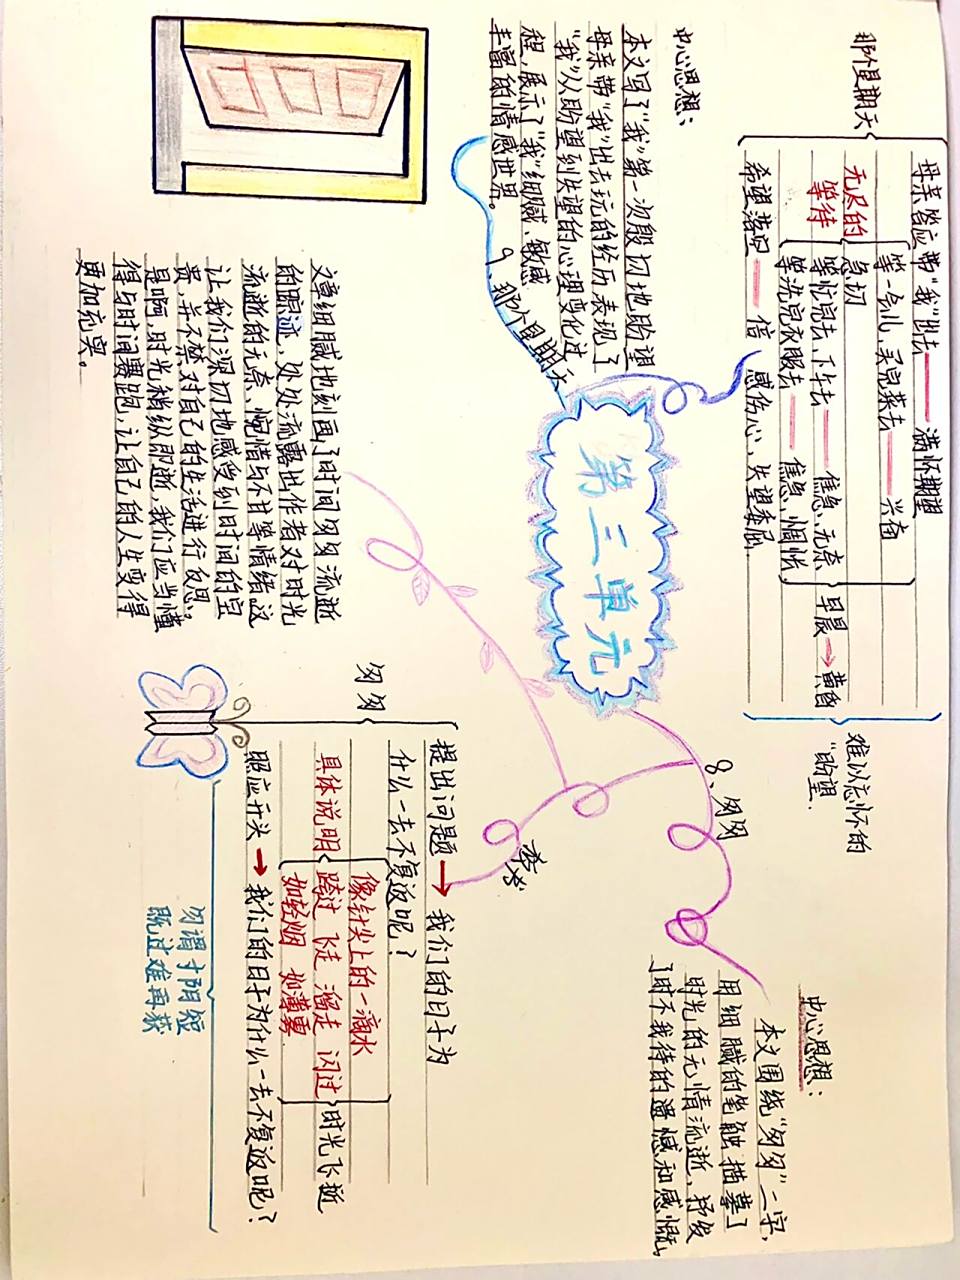 第三单元
9、那个星期天
中心思想：
本文写了“我”第一次殷切地盼望
母亲带“我”出去玩的经历表现了
“我”从盼望到失望的心理变化过
程，展示了“我”细腻、敏感
丰富的情感世界。
那个星期天
母亲答应带“我”出去——满怀期望
无尽的
等待
等一会儿，买完菜去——兴奋
急切
等忙完去，下午去——焦急、无奈
等洗完衣服去——焦急、惆怅
早晨→黄昏
希望落空——倍感伤心、失望委屈
难以忘怀的
“盼望
8、匆匆
中心思想：
本文围绕“匆匆”一字，
用细腻的笔触描摹了
时光的无情流逝，抒发
了时不我待的遗憾和感慨，
文章细腻地刻画了时间匆匆流逝
的踪迹，处处流露出作者对时光
流逝的无奈、惋惜与不甘等情绪，这
让我们深切地感受到时间的宝
贵，并不禁对自己的生活进行反思。
是啊，时光稍纵即逝，我们应当懂
得与时间赛跑，让自己的人生变得
更加充实。
匆匆
提出问题→我们的日子为
什么一去不复返呢？
具体说明
像针尖上的一滴水
跨过 飞走 溜走 闪过
如轻烟 如薄雾
时光飞逝
照应开头→我们的日子为什么一去不复返呢？
勿谓寸阴短
既过难再获